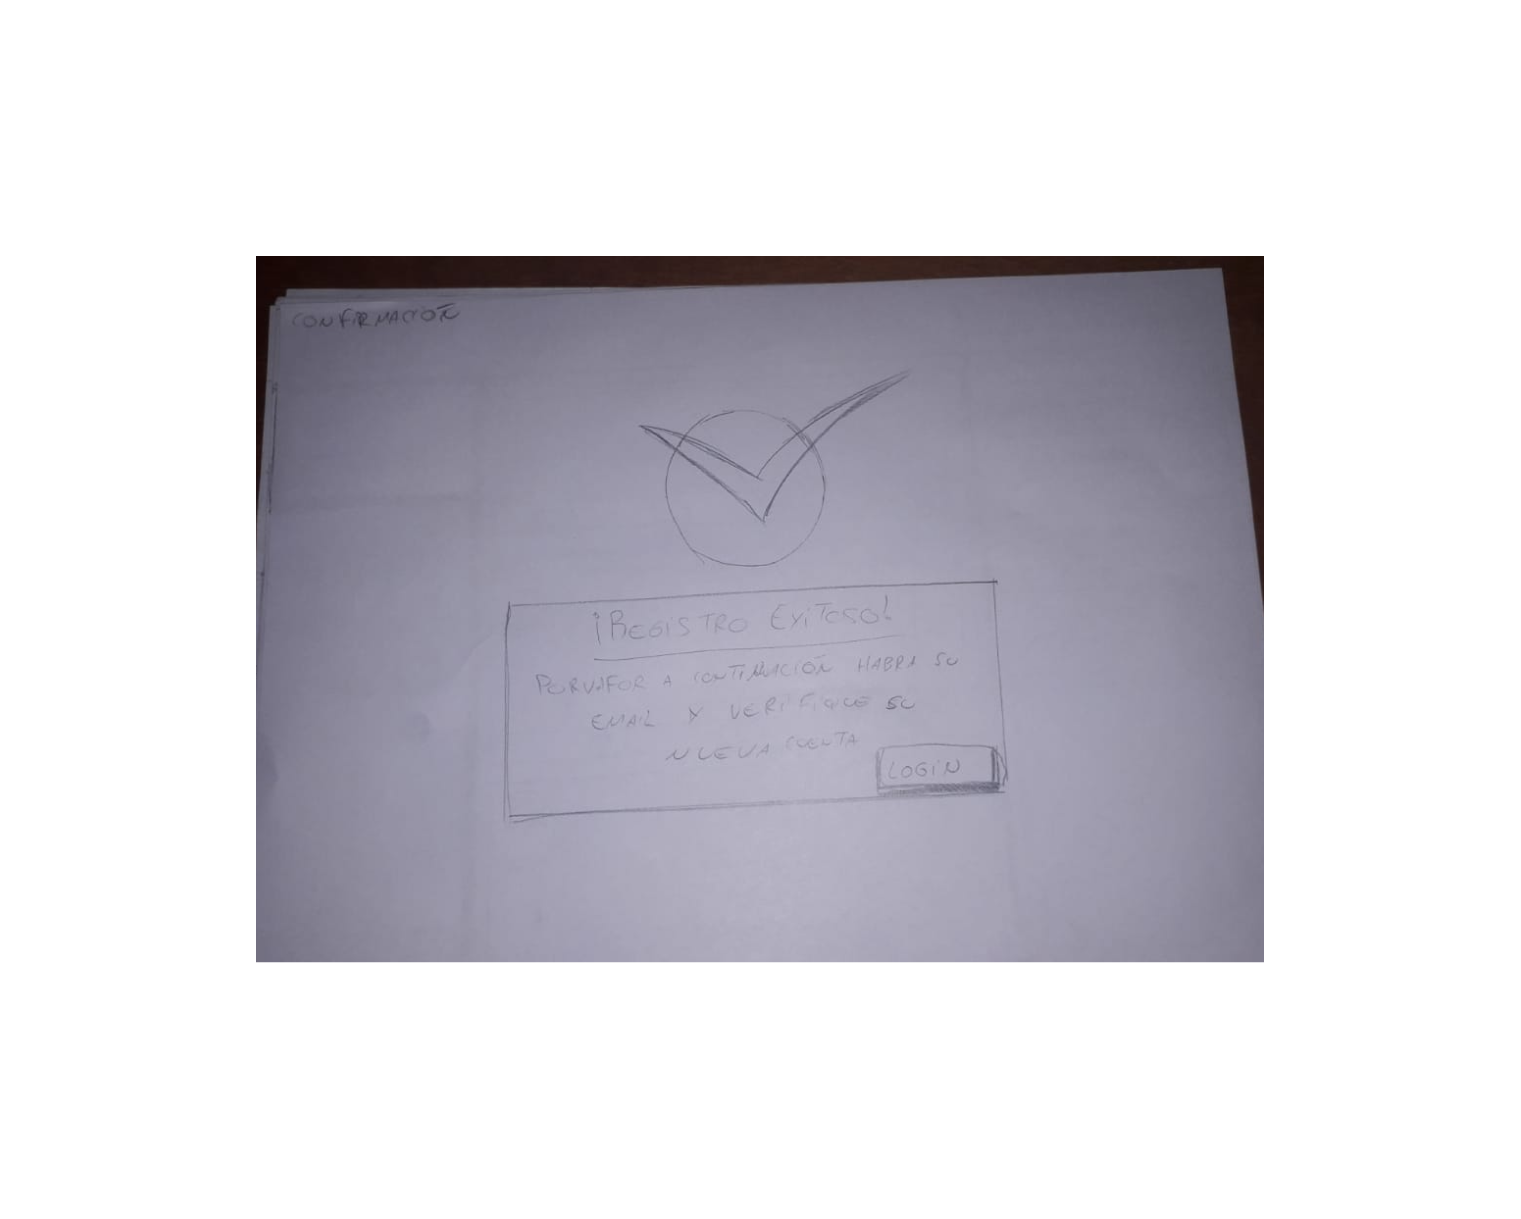 CONFIRMACIÓN
¡REGISTRO EXITOSO!
PORVAFOR A CONTINUACIÓN HABRA SU
EMAIL Y VERIFIQUE SU
NUEVA CUENTA
LOGIN